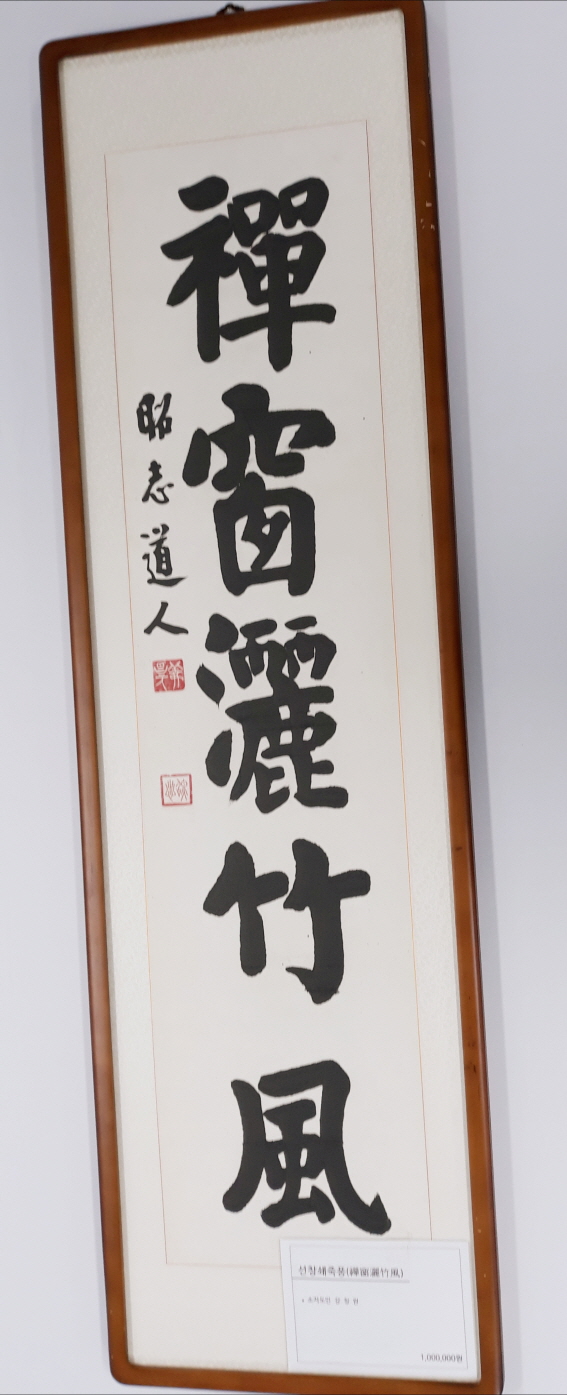 禪窗灑竹風
昭志道人
선창쇄죽풍(禪窗灑竹風)
1,000,000원